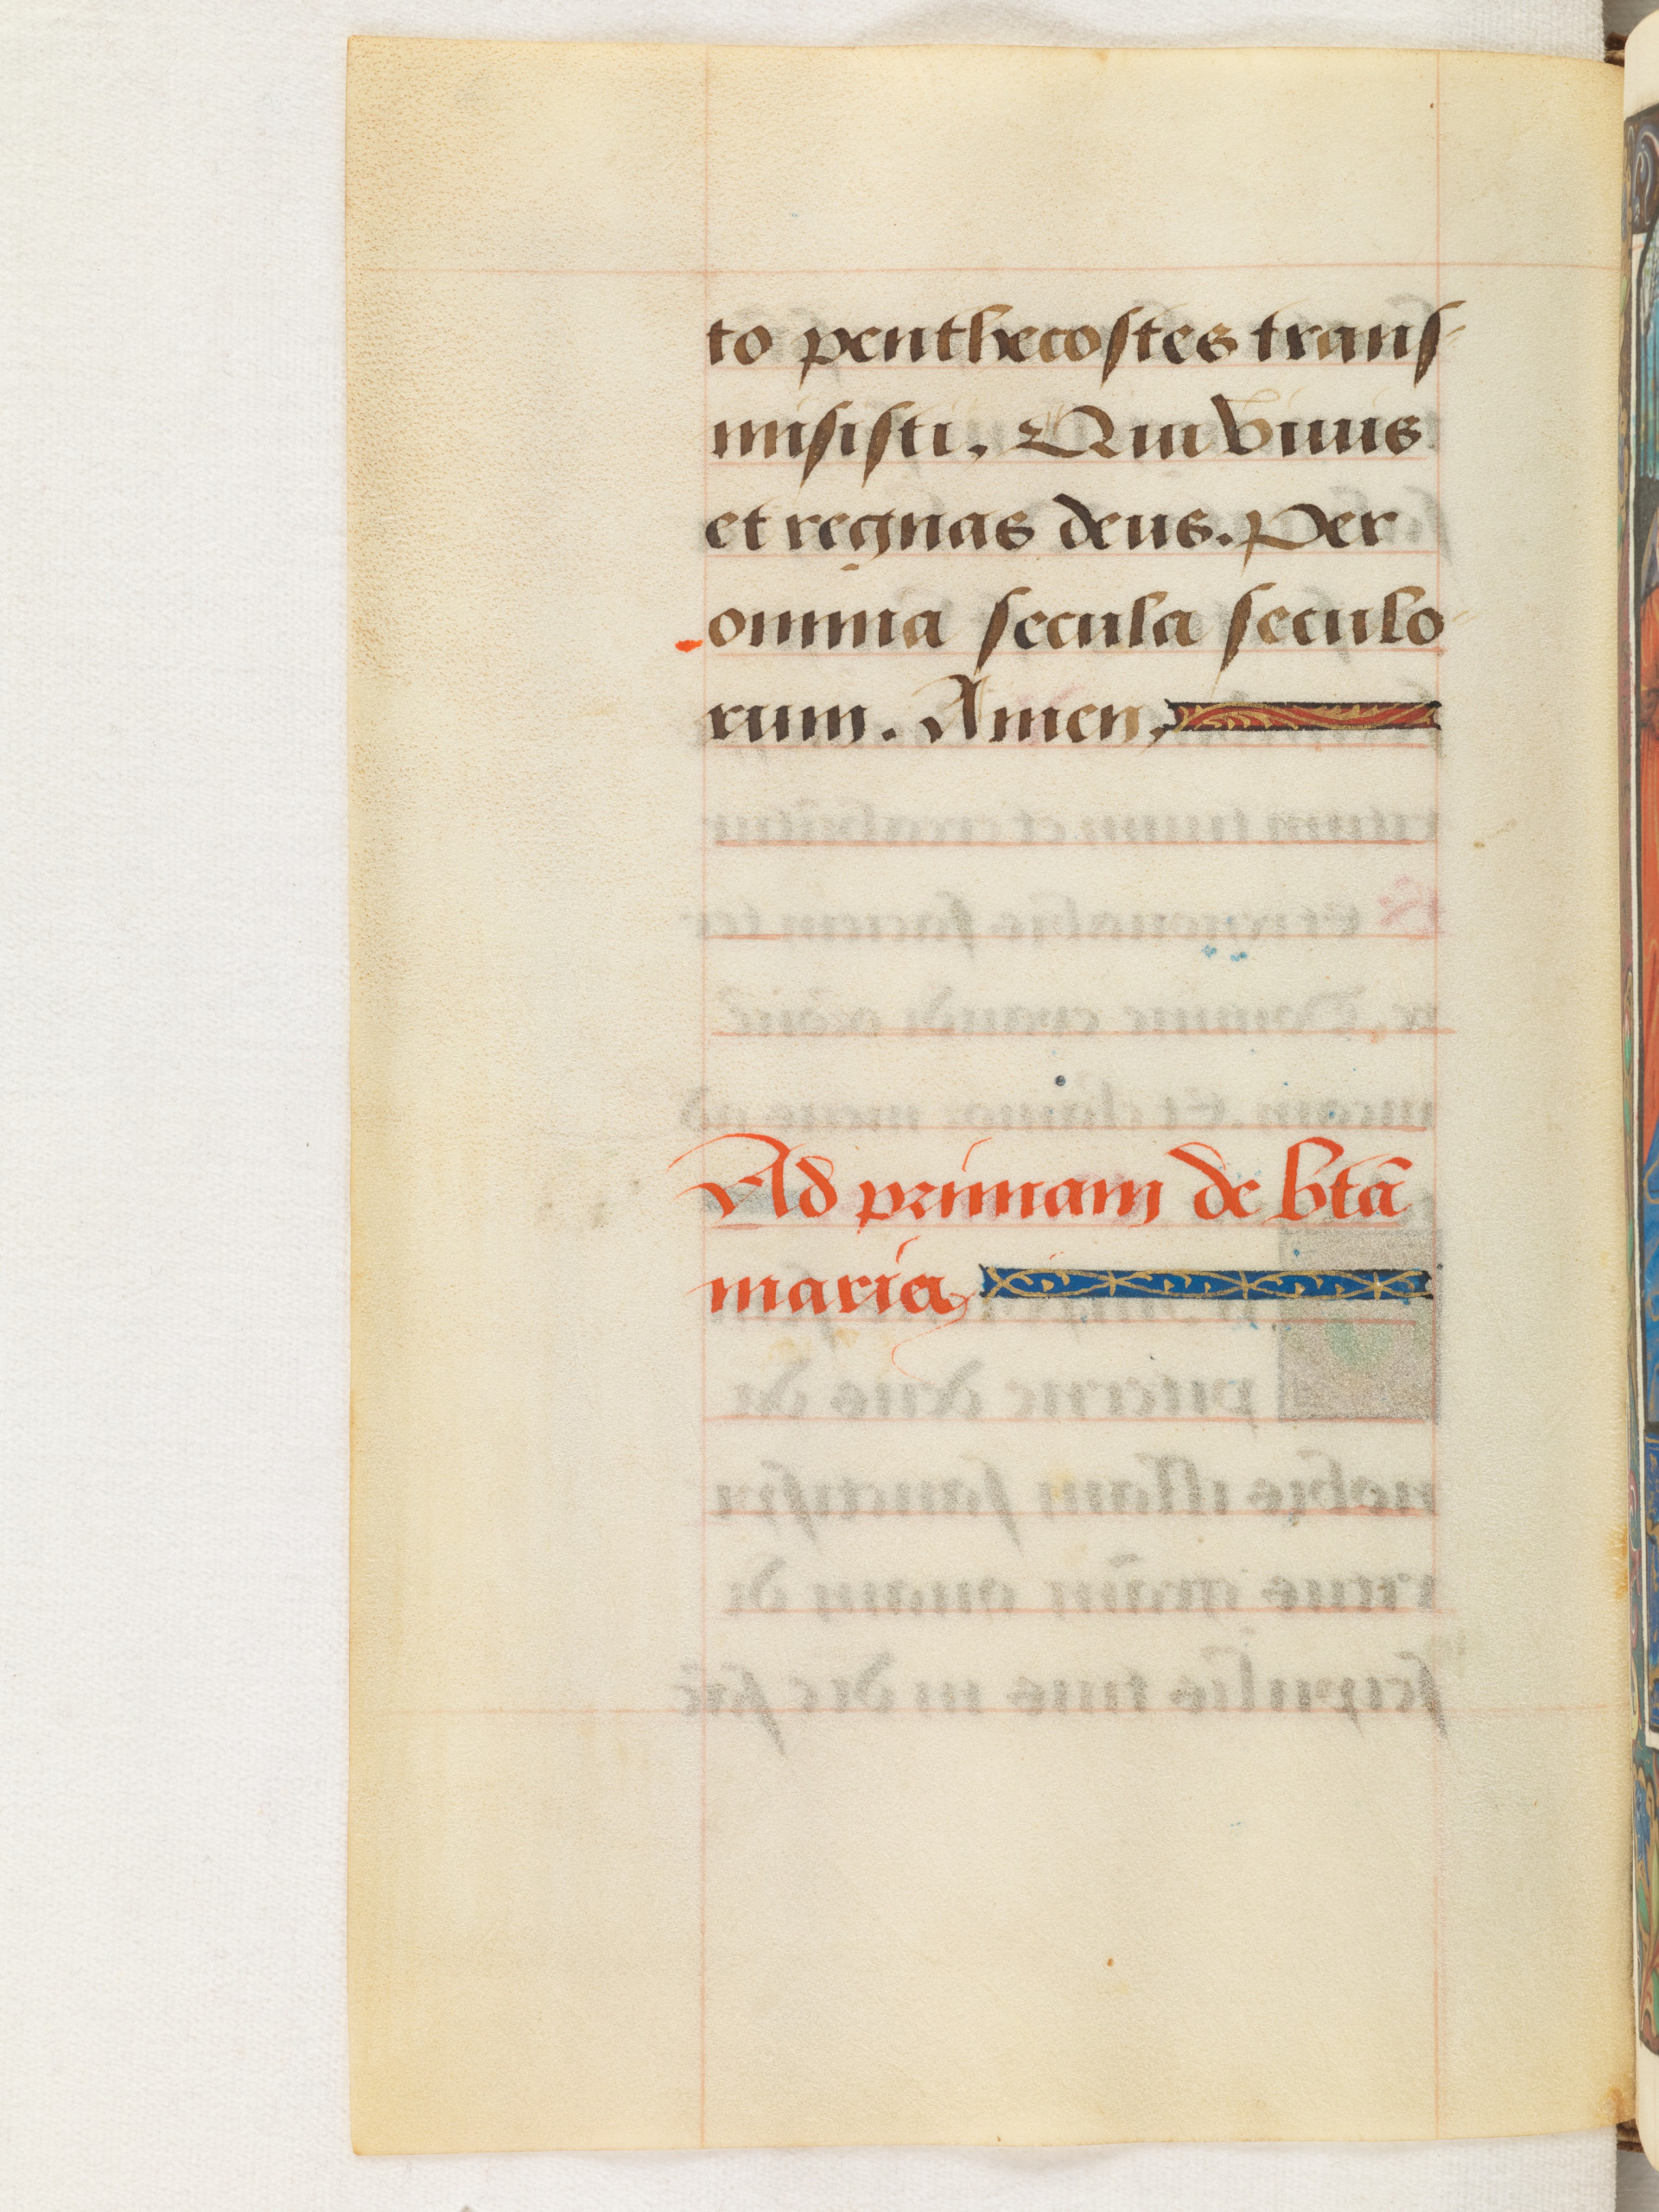 to penthecostes trans-
misisti. Qui viuis
et regnas deus. Per
omnia secula seculo-
rum. Amen.
Ad primam de btã
maria